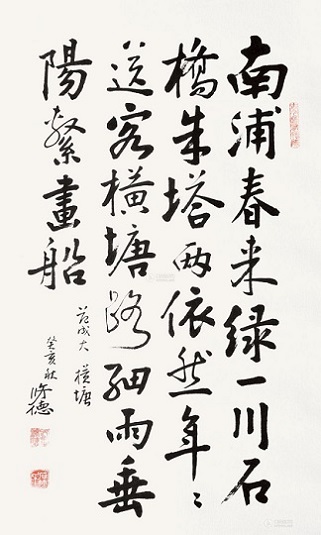 南浦春来绿一川石
橋朱塔两依然年〻
送客横塘路细雨垂
陽繫畫船
范成大 横塘
癸亥秋
修德